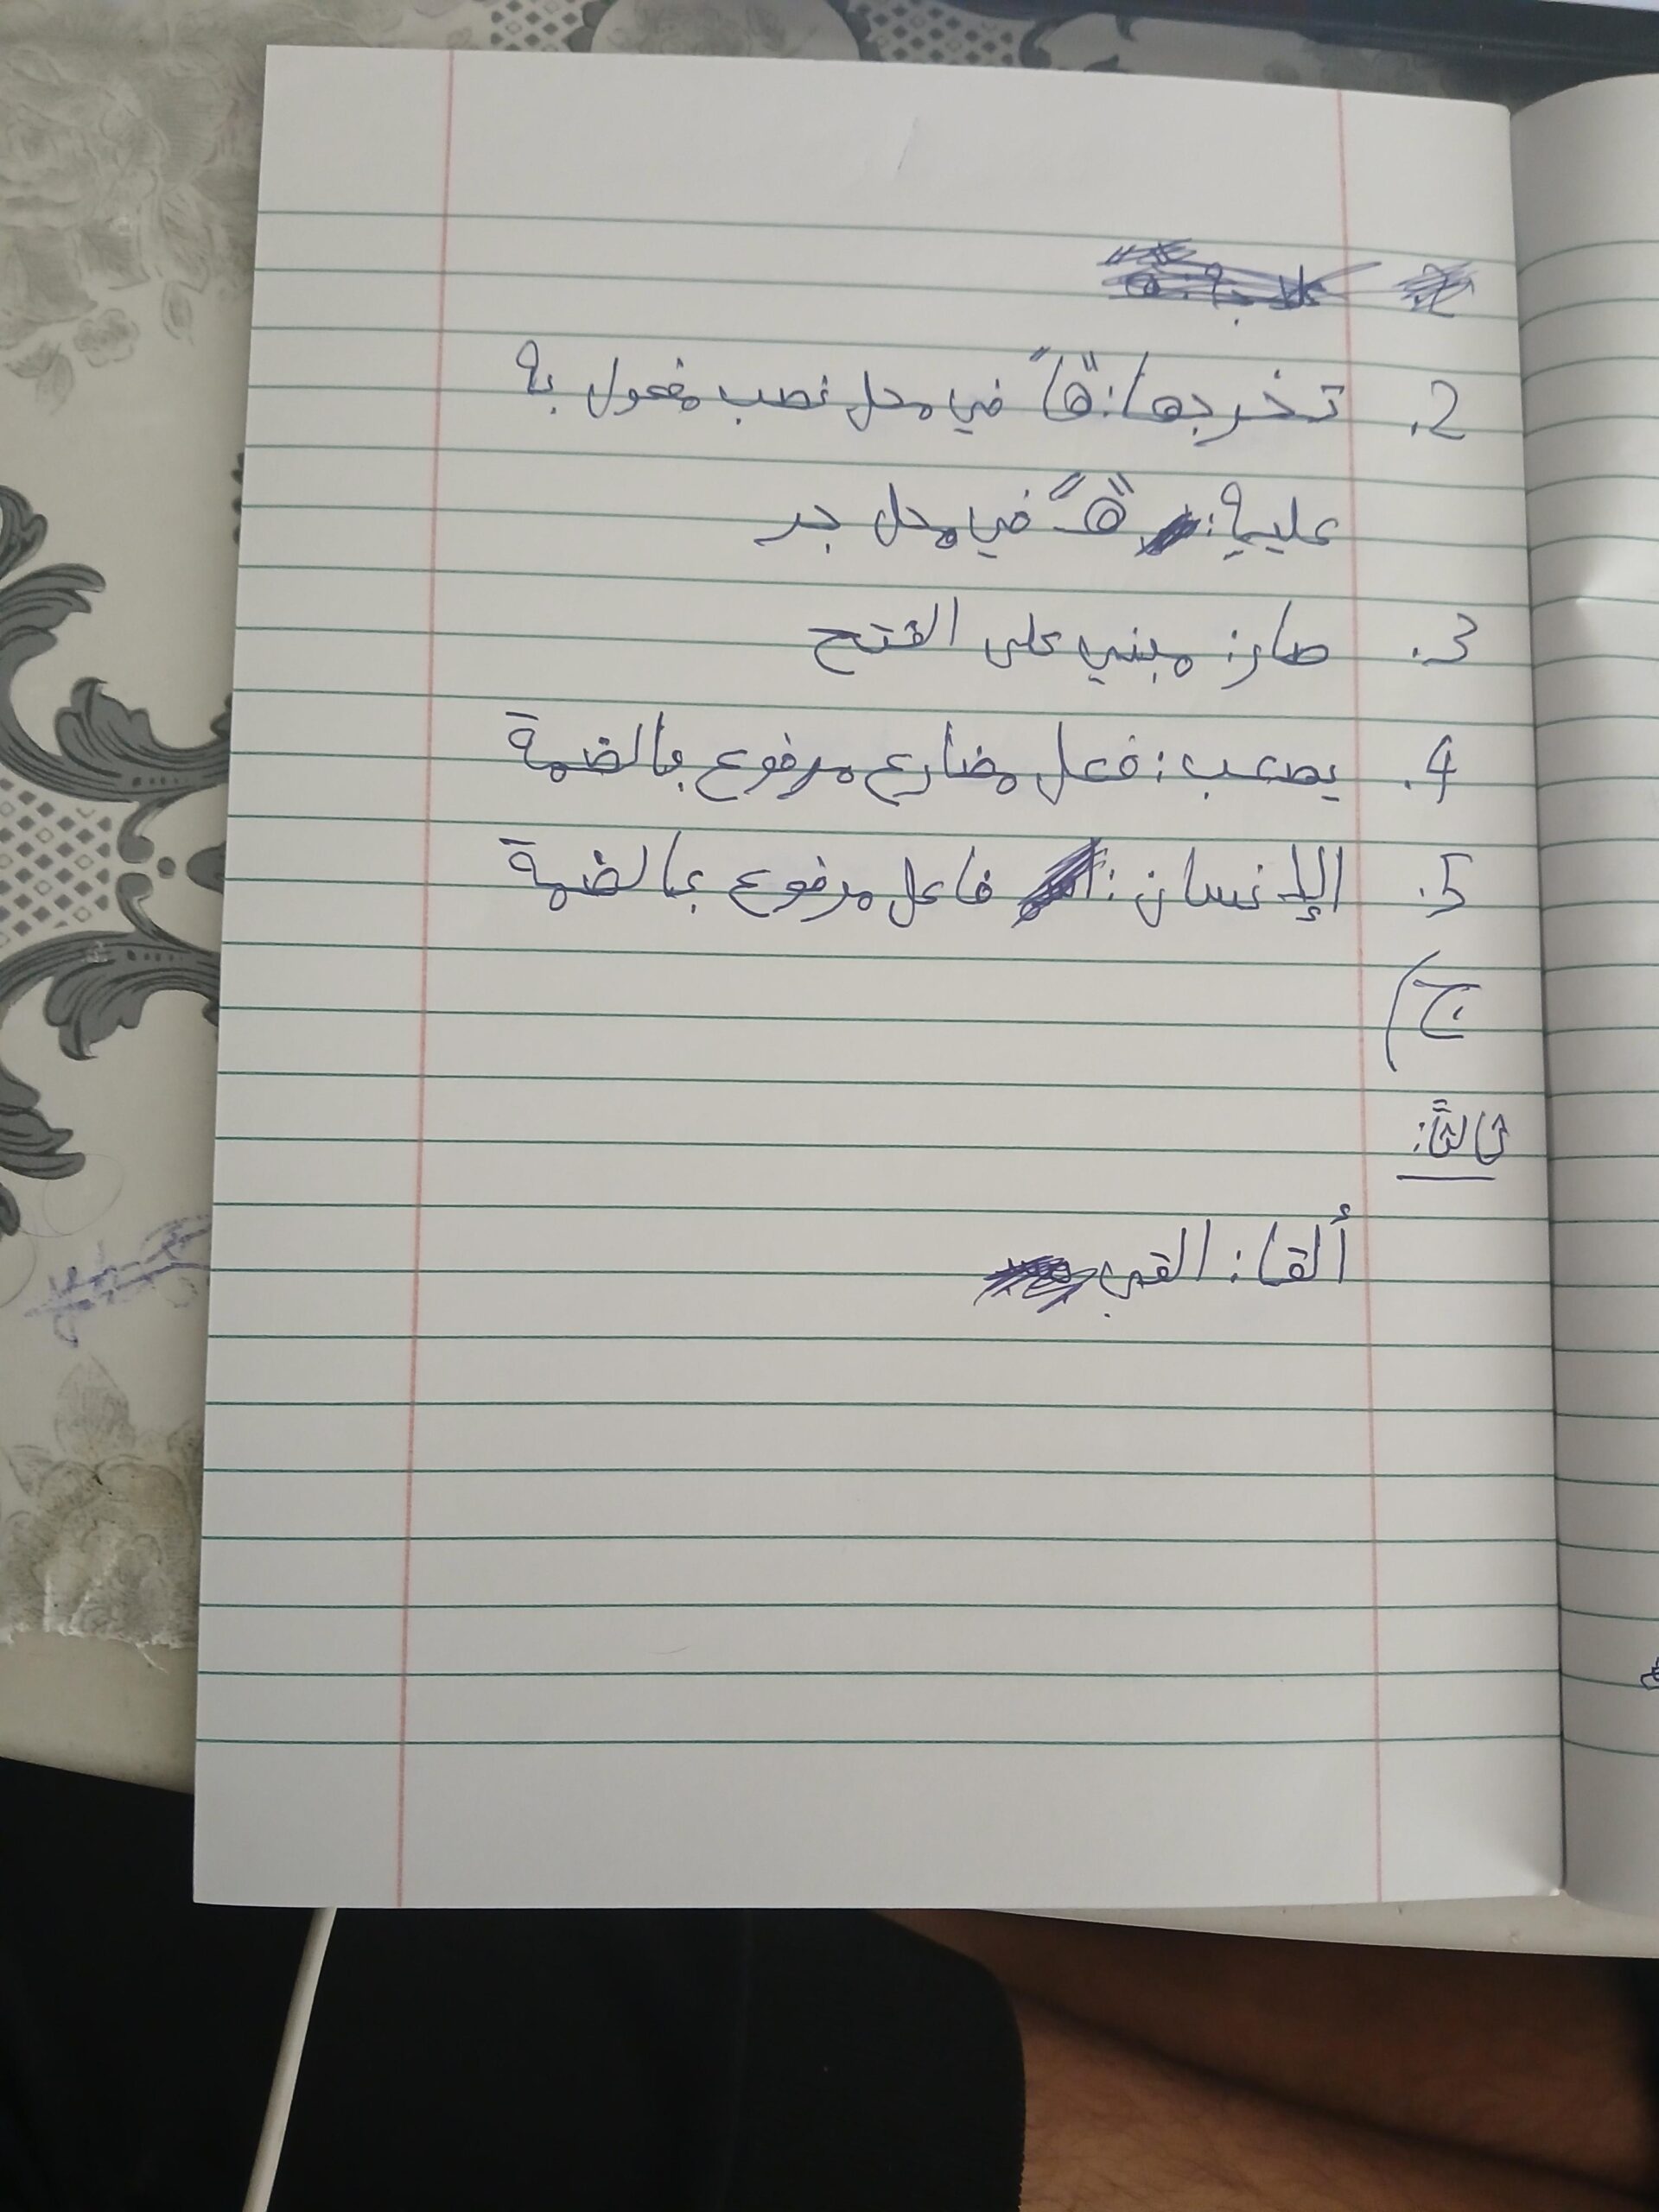 2. تخرجها: "ها" في محل نصب مفعول به
عليه: "ه" في محل جر
3. صار: مبني على الفتح
4. يصعب: فعل مضارع مرفوع بالضمة
5. الإنسان: فاعل مرفوع بالضمة
ج)
ثالثاً:
ألقا: القي